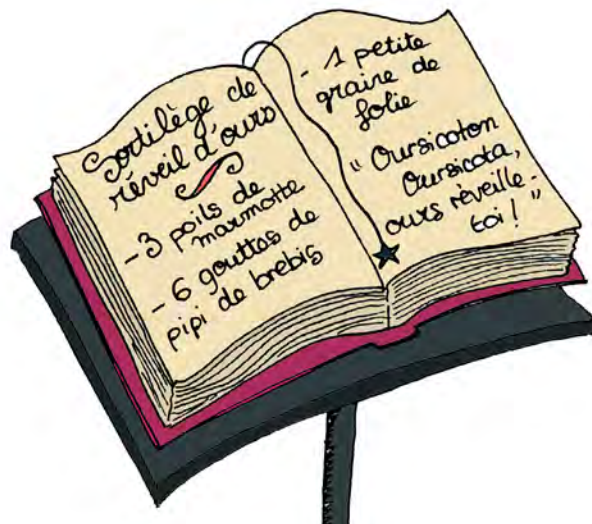 Sortilège de
réveil d'ours
- 3 poils de
marmotte
- 6 gouttes de
pipi de brebis
- 1 petite
graine de
folie
" Oursicoton
Oursicota,
ours réveille-
toi ! "